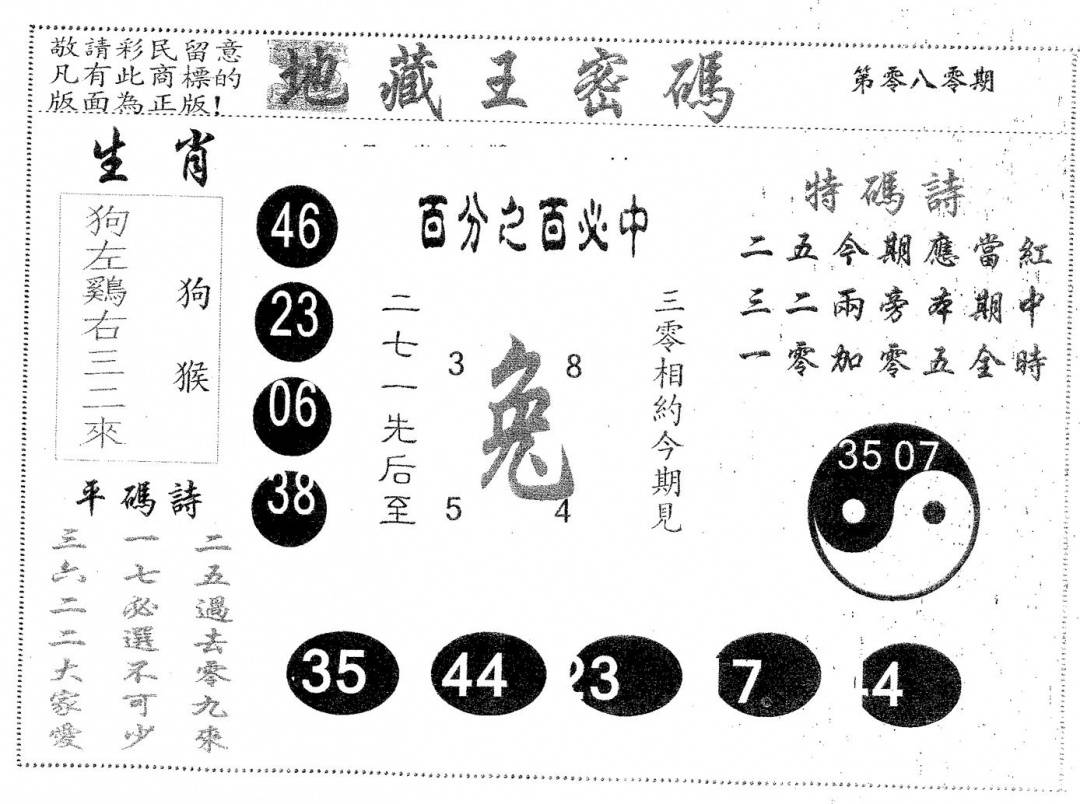 敬請彩民留意
凡有此商標的
版面為正版!
地藏王密碼
第零八零期
生肖
狗左鷄右三二來
狗猴
46
23
06
38
百分之百必中
二七一先后至
3
8
兔
5
4
三零相約今期見
特碼詩
二五今期應當紅
三二兩旁本期中
一零加零五全時
35 07
平碼詩
二五過去零九來
一七必選不可少
三六二二大家愛
35
44
23
7
44